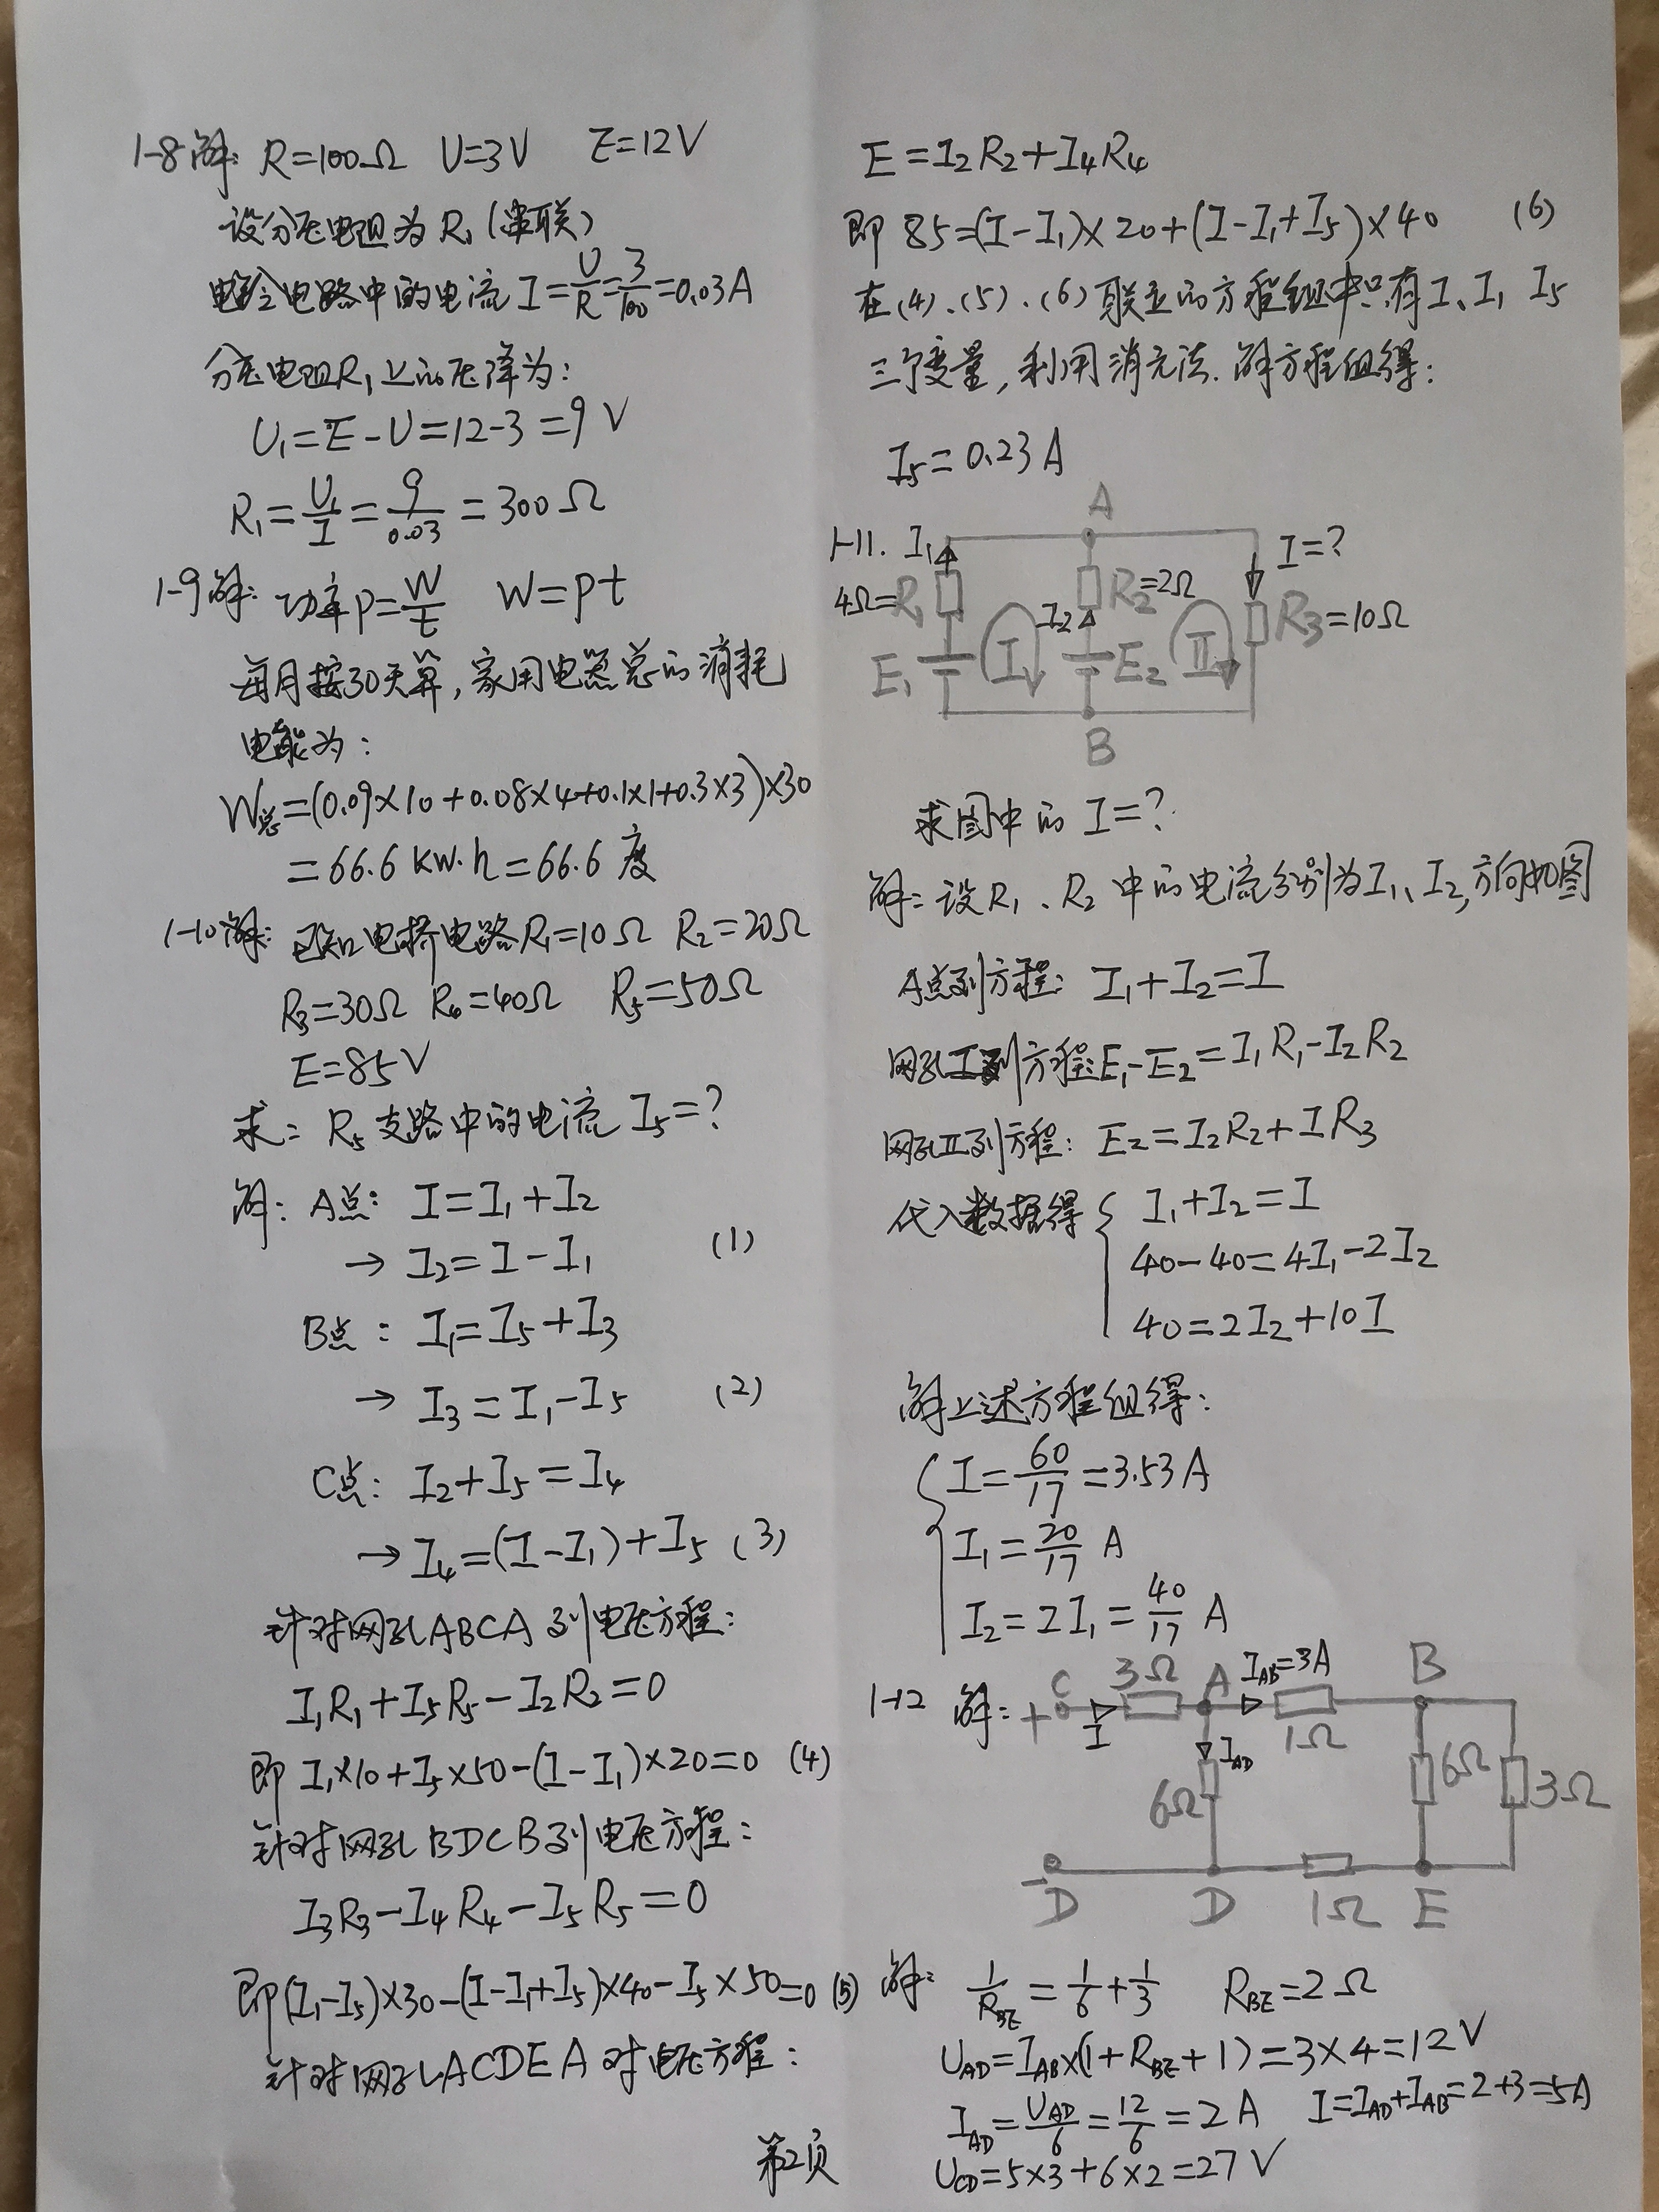 1-8解: R=100Ω U=3V E=12V
设分压电阻为R₁(串联)
电路中的电流I=U/R=3/100=0.03A
分压电阻R₁上的压降为:
U₁=E-U=12-3=9V
R₁=U₁/I=9/0.03=300Ω
1-9解: 功率P=W/t W=Pt
每月按30天算,家用电器总的消耗
电能为:
W总=(0.09×10+0.08×4+0.1×1+0.3×3)×30
=66.6 KW·h=66.6度
1-10解: 已知电桥电路R₁=10Ω R₂=20Ω
R₃=30Ω R₄=40Ω R₅=50Ω
E=85V
求: R₅支路中的电流I₅=?
解: A点: I=I₁+I₂
→ I₂=I-I₁ (1)
B点: I₁=I₅+I₃
→ I₃=I₁-I₅ (2)
C点: I₂+I₅=I₄
→ I₄=(I-I₁)+I₅ (3)
针对网孔ABCA列电压方程:
I₁R₁+I₅R₅-I₂R₂=0
即 I₁×10+I₅×50-(I-I₁)×20=0 (4)
针对网孔BDCB列电压方程:
I₃R₃-I₄R₄-I₅R₅=0
即(I₁-I₅)×30-(I-I₁+I₅)×40-I₅×50=0 (5)
针对网孔ACDEA对电压方程:
E=I₂R₂+I₄R₄
即 85=(I-I₁)×20+(I-I₁+I₅)×40 (6)
在(4)、(5)、(6)联立的方程组中只有I、I₁ I₅
三个变量,利用消元法.解方程组得:
I₅=0.23A
A
1-11. I₁ I=?
4Ω=R₁ R₂=2Ω R₃=10Ω
I₂
E₁ I E₂ II
B
求图中的 I=?
解: 设R₁、R₂中的电流分别为I₁、I₂,方向如图
A点列方程: I₁+I₂=I
网孔I列方程:E₁-E₂=I₁R₁-I₂R₂
网孔II列方程: E₂=I₂R₂+IR₃
代入数据得{ I₁+I₂=I
40-40=4I₁-2I₂
40=2I₂+10I
解上述方程组得:
{ I=60/17=3.53A
I₁=20/17 A
I₂=2I₁=40/17 A
1-12 解: + C 3Ω A I_AB=3A B
I I_AD 1Ω
6Ω 6Ω 3Ω
- D D 1Ω E
解: 1/R_BE=1/6+1/3 R_BE=2Ω
U_AD=I_AB×(1+R_BE+1)=3×4=12V
I_AD=U_AD/6=12/6=2A I=I_AD+I_AB=2+3=5A
U_CD=5×3+6×2=27V
第2页